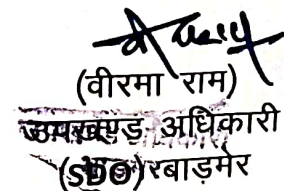 (वीरमा राम)
उपखण्ड अधिकारी
(SDO) बाड़मेर